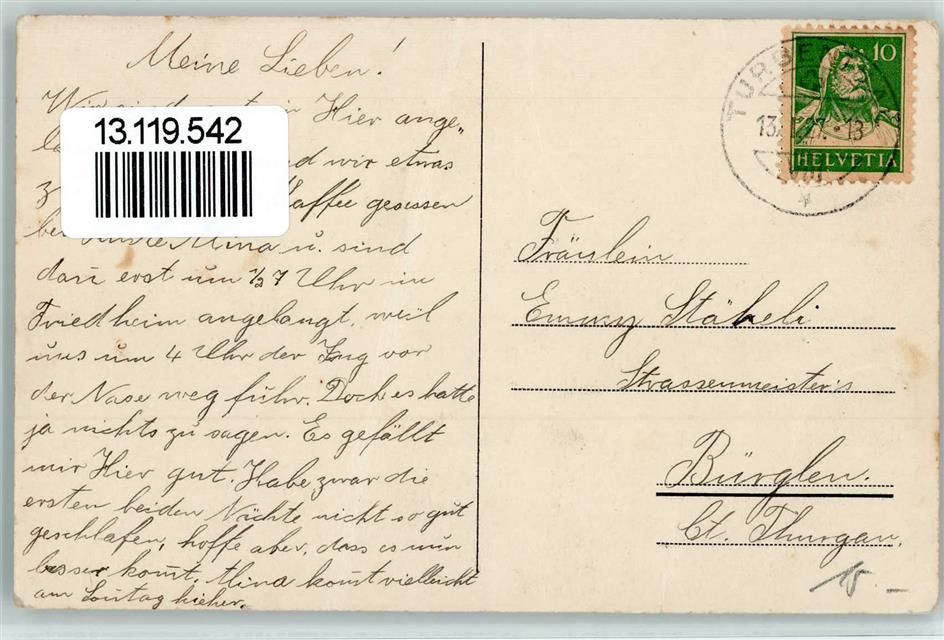 Meine Lieben!
Wir sind in Hier ange„
13.119.542
wir etwas
Kaffee gesessen
bei Mina u. sind
dan erst um ½ 7 Uhr im
Friedheim angelangt, weil
uns um 4 Uhr der Zug vor
der Nase weg führ. Doch es hatte
ja nichts zu sagen. Es gefällt
mir Hier gut. Habe zwar die
ersten beiden Nächte nicht so gut
geschlafen, hoffe aber, dass es nun
besser komt. Mina komt vielleicht
am Sontag hieher.
10
HELVETIA
Fräulein
Emmy Stäheli
Strassenmeister's
Bürglen.
Ct. Thurgau.